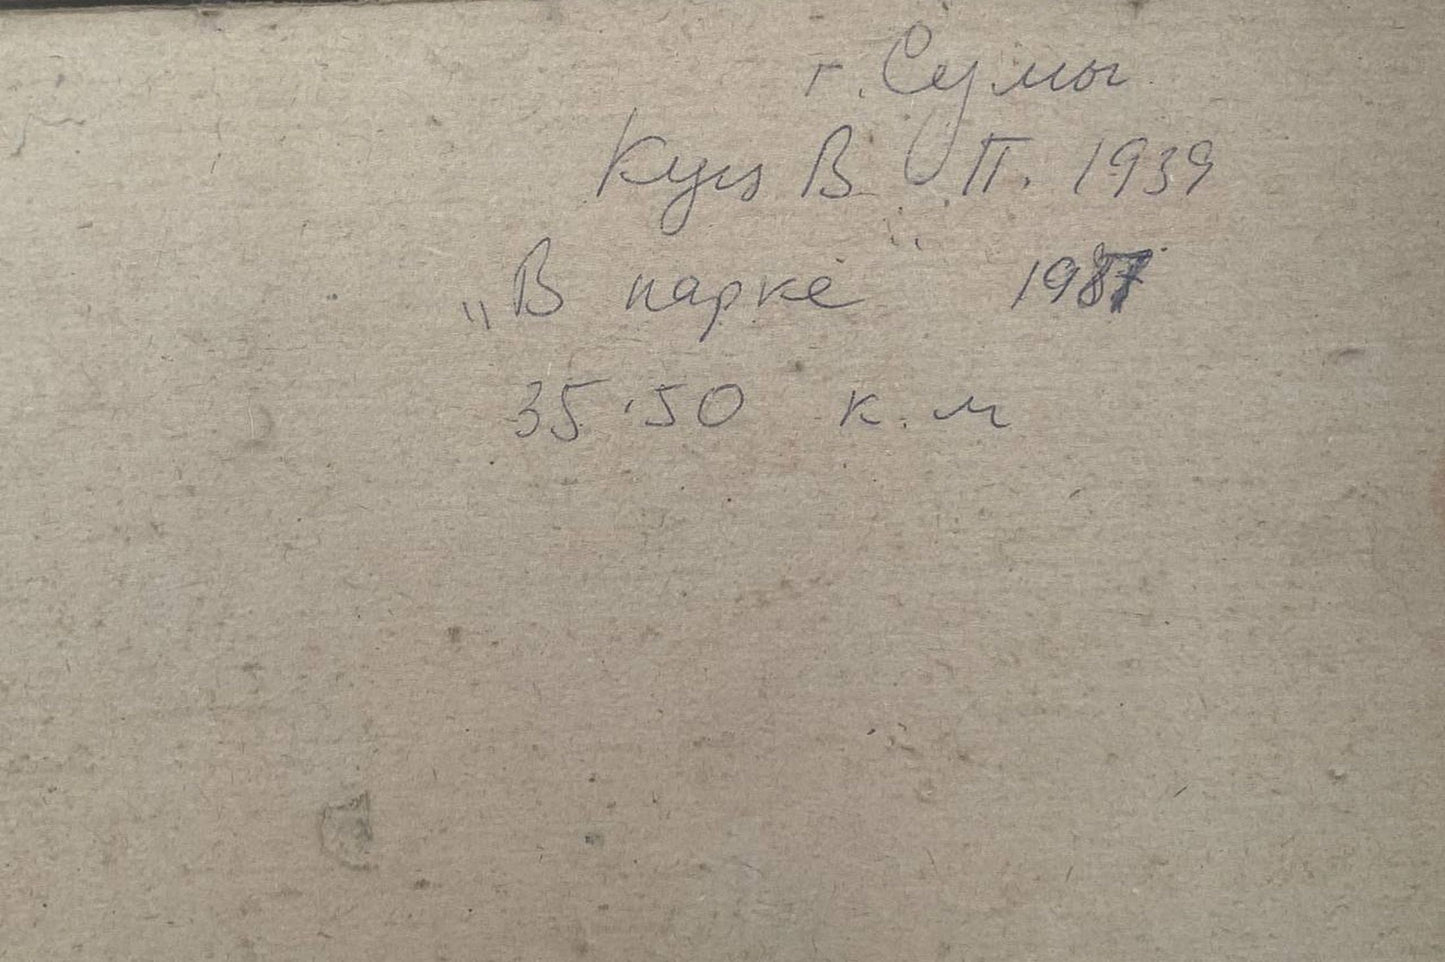 г. Сумы
Куц В П. 1939
„В парке" 1987
35.50 к.м